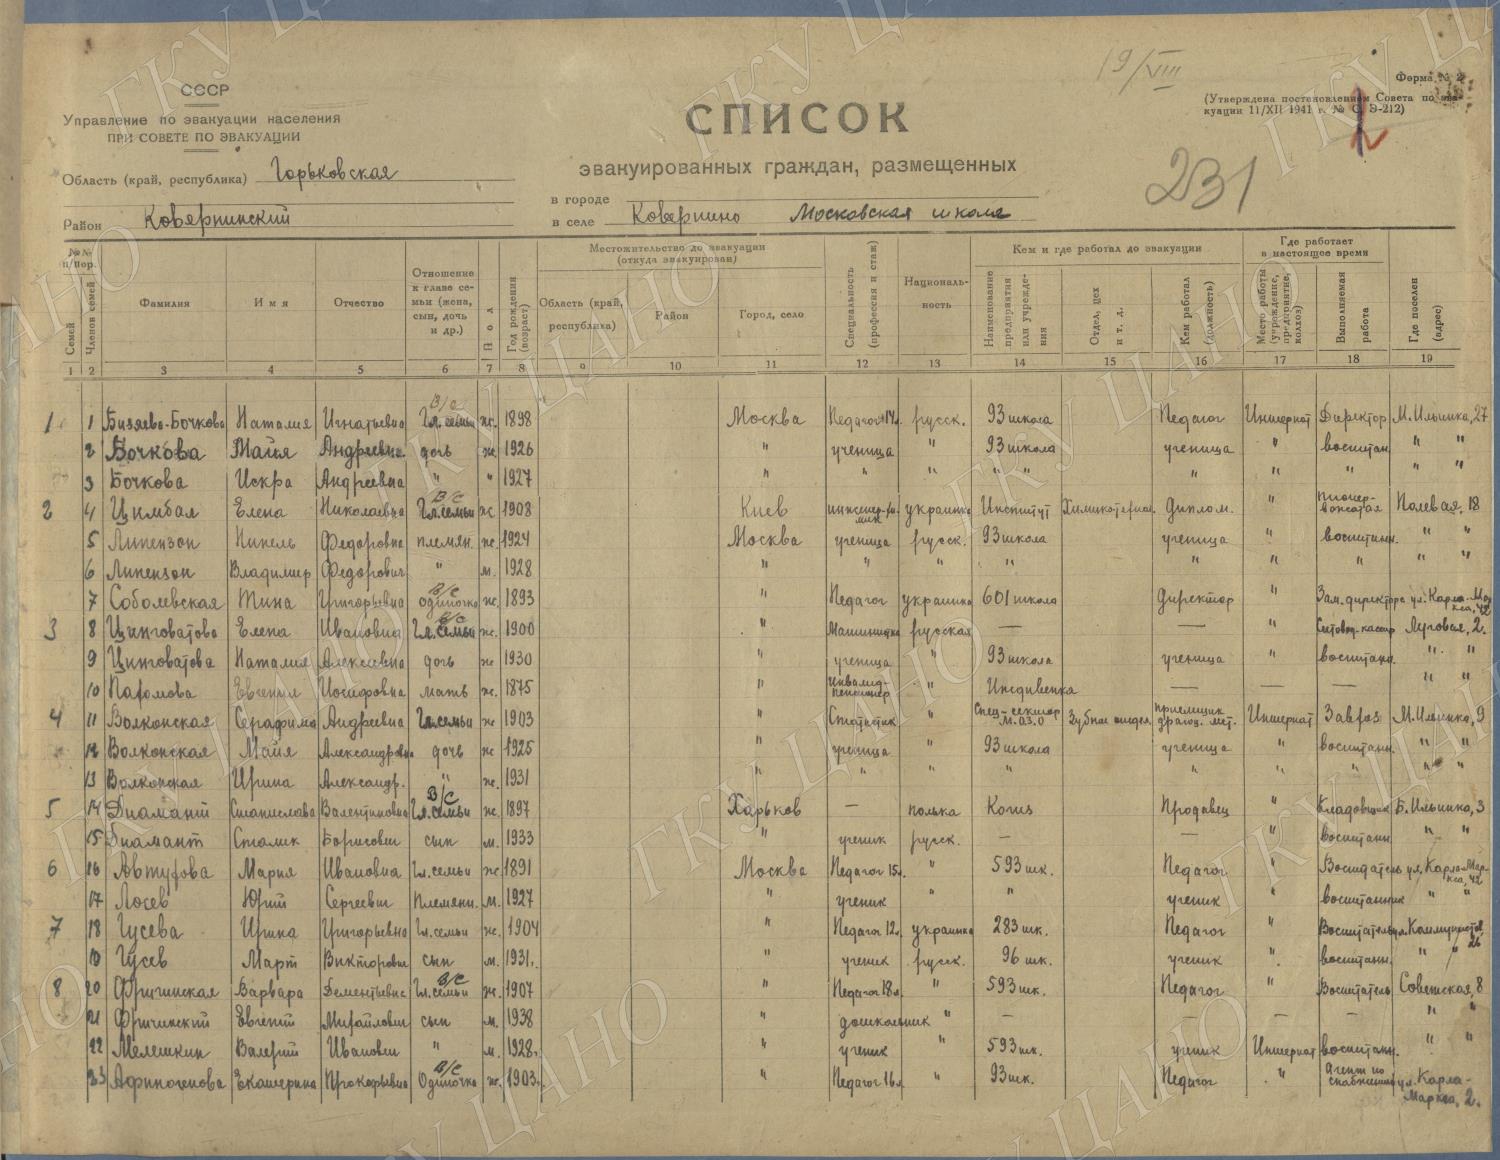 19/VIII
СССР
Управление по эвакуации населения
ПРИ СОВЕТЕ ПО ЭВАКУАЦИИ
Форма № 2
(Утверждена постановлением Совета по эва-
куации 11/XII 1941 г. № С Э-212)
СПИСОК
231
эвакуированных граждан, размещенных
Область (край, республика) Горьковская
Район Ковернинский
в городе
в селе Ковернино Московская школа
№№ п/пор. Семей Членов семей Фамилия Имя Отчество Отношение к главе се-мьи (жена, сын, дочь и др.) Пол Год рождения (возраст) Местожительство до эвакуации (откуда эвакуирован) Область (край, республика) Район Город, село Специальность (профессия и стаж) Националь-ность Кем и где работал до эвакуации Наименование предприятия или учрежде-ния Отдел, цех и т. д. Кем работал (должность) Где работает в настоящее время Место работы (учреждение, предприятие, колхоз) Выполняемая работа Где поселен (адрес)
1 2 3 4 5 6 7 8 9 10 11 12 13 14 15 16 17 18 19
1 1 Бизяева-Бочкова Наталия Игнатьевна В/с Гл. семьи ж. 1898 Москва Педагог 14л. русск. 93 школа Педагог Интернат Директор М. Ильинка, 27
2 Бочкова Майя Андреевна дочь ж. 1926 " ученица " 93 школа ученица " воспитан. " "
3 Бочкова Искра Андреевна " " 1927 " " " " " " " " " "
2 4 Цимбал Елена Николаевна В/с Гл. семьи ж. 1908 Киев украинка Институт Диплом. " пионер-вожатая Полевая, 18
5 Липензон Нинель Федоровна племян. ж. 1924 Москва ученица русск. 93 школа ученица " воспитанн. " "
6 Липензон Владимир Федорович " м. 1928 " " " " " " " " "
7 Соболевская Тина Григорьевна В/с одиночка ж. 1893 " Педагог украинка 601 школа Директор " Зам. директора ул. Карла-Маркса, 42
3 8 Цинговатова Елена Ивановна В/с Гл. семьи ж. 1900 " Машинистка русская — — " Счетовод-кассир Луговая, 2.
9 Цинговатова Наталия Алексеевна дочь ж 1930 " ученица " 93 школа ученица " воспитанн. " "
10 Пахомова Евгения Иосифовна мать ж. 1875 " Инвалид-пенсионер " Иждивенка — — — " "
4 11 Волконская Серафима Андреевна Гл. семьи ж 1903 " Статистик " приемщик драгоц. мет. Интернат Завхоз М. Ильинка, 9
12 Волконская Майя Александровна дочь ж 1925 " ученица " 93 школа ученица " воспитанн. " "
13 Волконская Ирина Александр. " ж. 1931 " " " " " " " " "
5 14 Диамант Станислава Валентиновна В/с Гл. семьи ж. 1897 Харьков — полька Когиз Продавец " Кладовщик Б. Ильинка, 3
15 Диамант Сталик Борисович сын м. 1933 " ученик русск. — — " воспитанн " "
6 16 Автухова Мария Ивановна Гл. семьи ж. 1891 Москва Педагог 15л. " 593 шк. Педагог " Воспитатель ул. Карла-Маркса, 42
17 Лосев Юрий Сергеевич Племянн. м. 1927 " ученик " " ученик " воспитанник " "
7 18 Гусева Ирина Григорьевна Гл. семьи ж. 1904 " Педагог 12л. украинка 283 шк. Педагог " Воспитатель ул. Коммунистов, 26
19 Гусев Март Викторович сын м. 1931. " ученик русск. 96 шк. ученик " воспитанн. " "
8 20 Фричинская Варвара Дементьевна В/с Гл. семьи ж. 1907 " Педагог 18л " 593 шк. Педагог " Воспитатель Советская, 8
21 Фричинский Евгений Михайлович сын м. 1938 " дошкольник " — — — — " "
22 Мелешкин Валерий Иванович " м. 1928. " ученик " 593 шк. ученик Интернат воспитанн. " "
23 Афиногенова Екатерина Прокофьевна В/с Одиночка ж. 1903. " Педагог 16л " 93 шк. Педагог " Агент по снабжению ул. Карла-Маркса, 2.
ГКУ ЦАНО